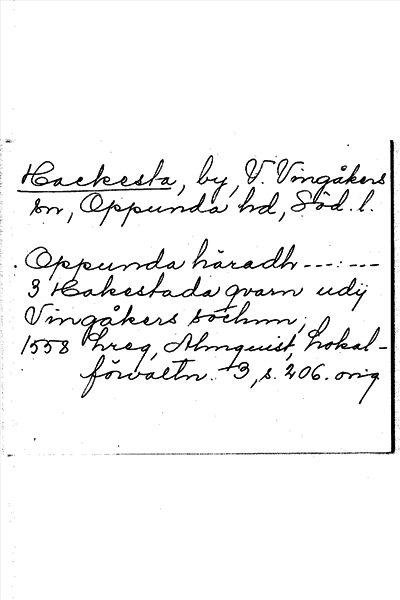 Hackesta, by, V. Vingåkers
sn, Oppunda hd, Söd. l.
Oppunda häradh ---:---
3 Hakestada qvarn udij
Vingåkers sochnn;
1558 hreg, Almquist, Lokal-
förvaltn. 3, s. 206. orig